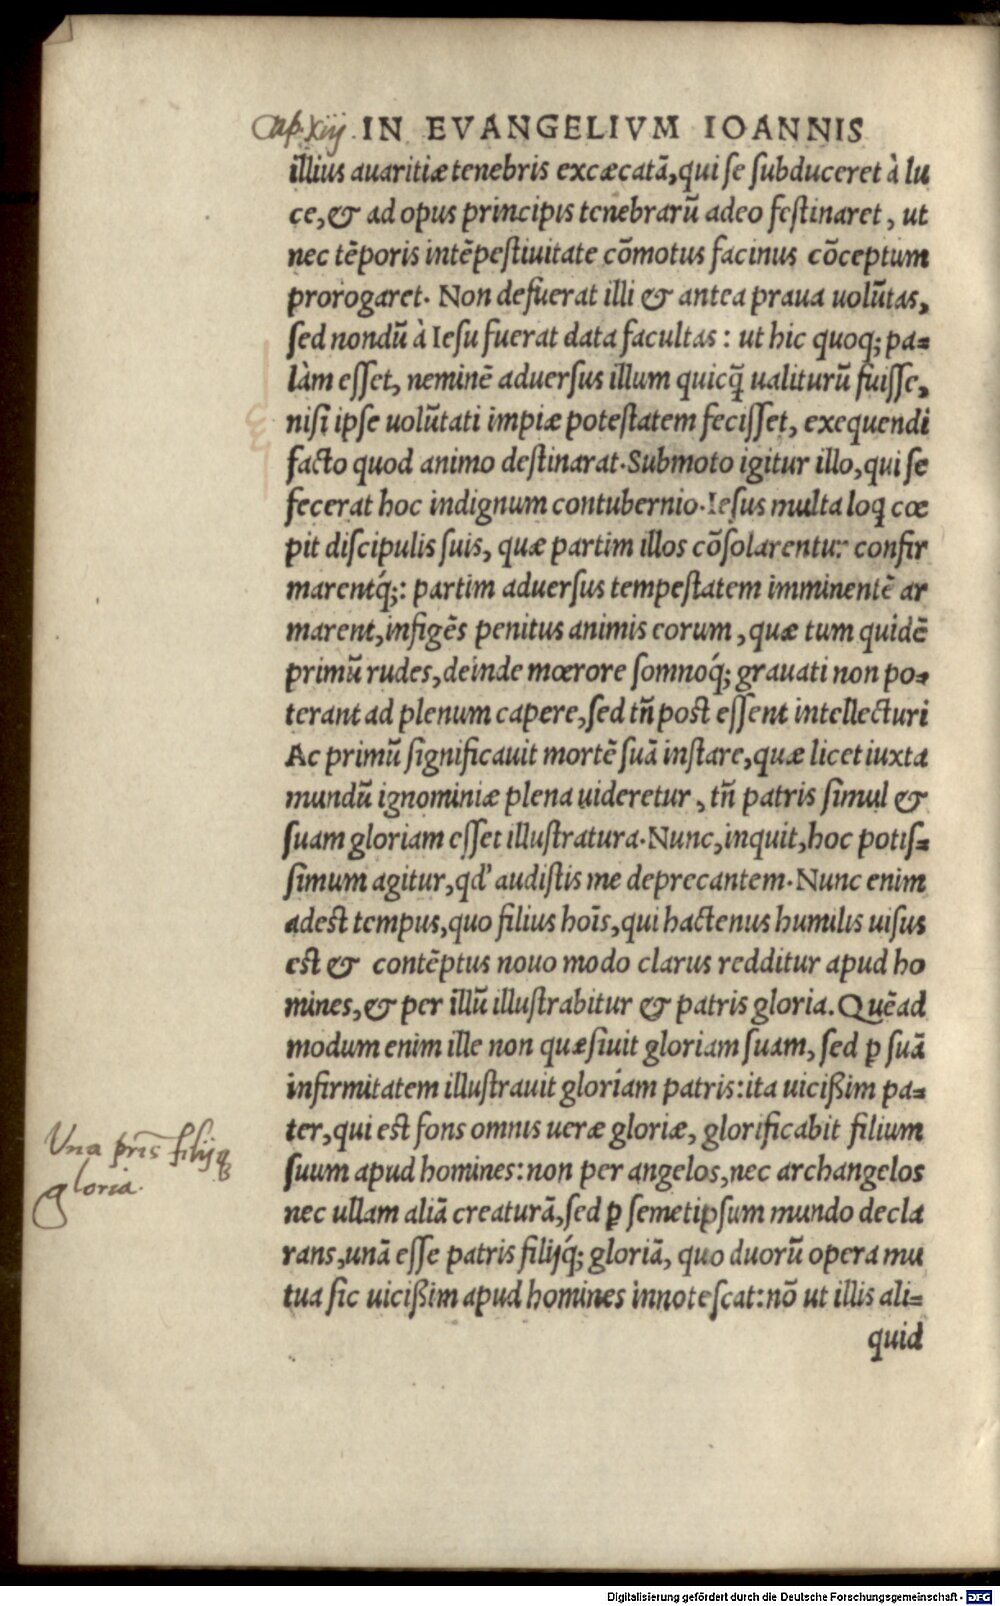 Cap. xiij. IN EVANGELIVM IOANNIS
illius auaritiæ tenebris excæcatã, qui se subduceret à lu
ce, & ad opus principis tenebrarũ adeo festinaret, ut
nec tẽporis intẽpestiuitate cõmotus facinus cõceptum
prorogaret. Non defuerat illi & antea praua uolũtas,
sed nondũ à Iesu fuerat data facultas: ut hic quoq; pa-
làm esset, neminẽ aduersus illum quicq̃ ualiturũ fuisse,
nisi ipse uolũtati impiæ potestatem fecisset, exequendi
facto quod animo destinarat. Submoto igitur illo, qui se
fecerat hoc indignum contubernio. Iesus multa loq̨ cœ
pit discipulis suis, quæ partim illos cõsolarentur confir
marentq́;: partim aduersus tempestatem imminentẽ ar
marent, infigẽs penitus animis eorum, quæ tum quidẽ
primũ rudes, deinde mœrore somnoq́; grauati non po-
terant ad plenum capere, sed tñ post essent intellecturi
Ac primũ significauit mortẽ suã instare, quæ licet iuxta
mundũ ignominiæ plena uideretur, tñ patris simul &
suam gloriam esset illustratura. Nunc, inquit, hoc potis-
simum agitur, qd' audistis me deprecantem. Nunc enim
adest tempus, quo filius hoĩs, qui hactenus humilis uisus
est & contẽptus nouo modo clarus redditur apud ho
mines, & per illũ illustrabitur & patris gloria. Quẽad
modum enim ille non quæsiuit gloriam suam, sed ꝑ suã
infirmitatem illustrauit gloriam patris: ita uicißim pa-
ter, qui est fons omnis ueræ gloriæ, glorificabit filium
suum apud homines: non per angelos, nec archangelos
nec ullam aliã creaturã, sed ꝑ semetipsum mundo decla
rans, unã esse patris filijq́; gloriã, quo duorũ opera mu
tua sic uicißim apud homines innotescat: nõ ut illis ali-
quid
Vna pr̃is filijq
gloria.
Digitalisierung gefördert durch die Deutsche Forschungsgemeinschaft - DFG